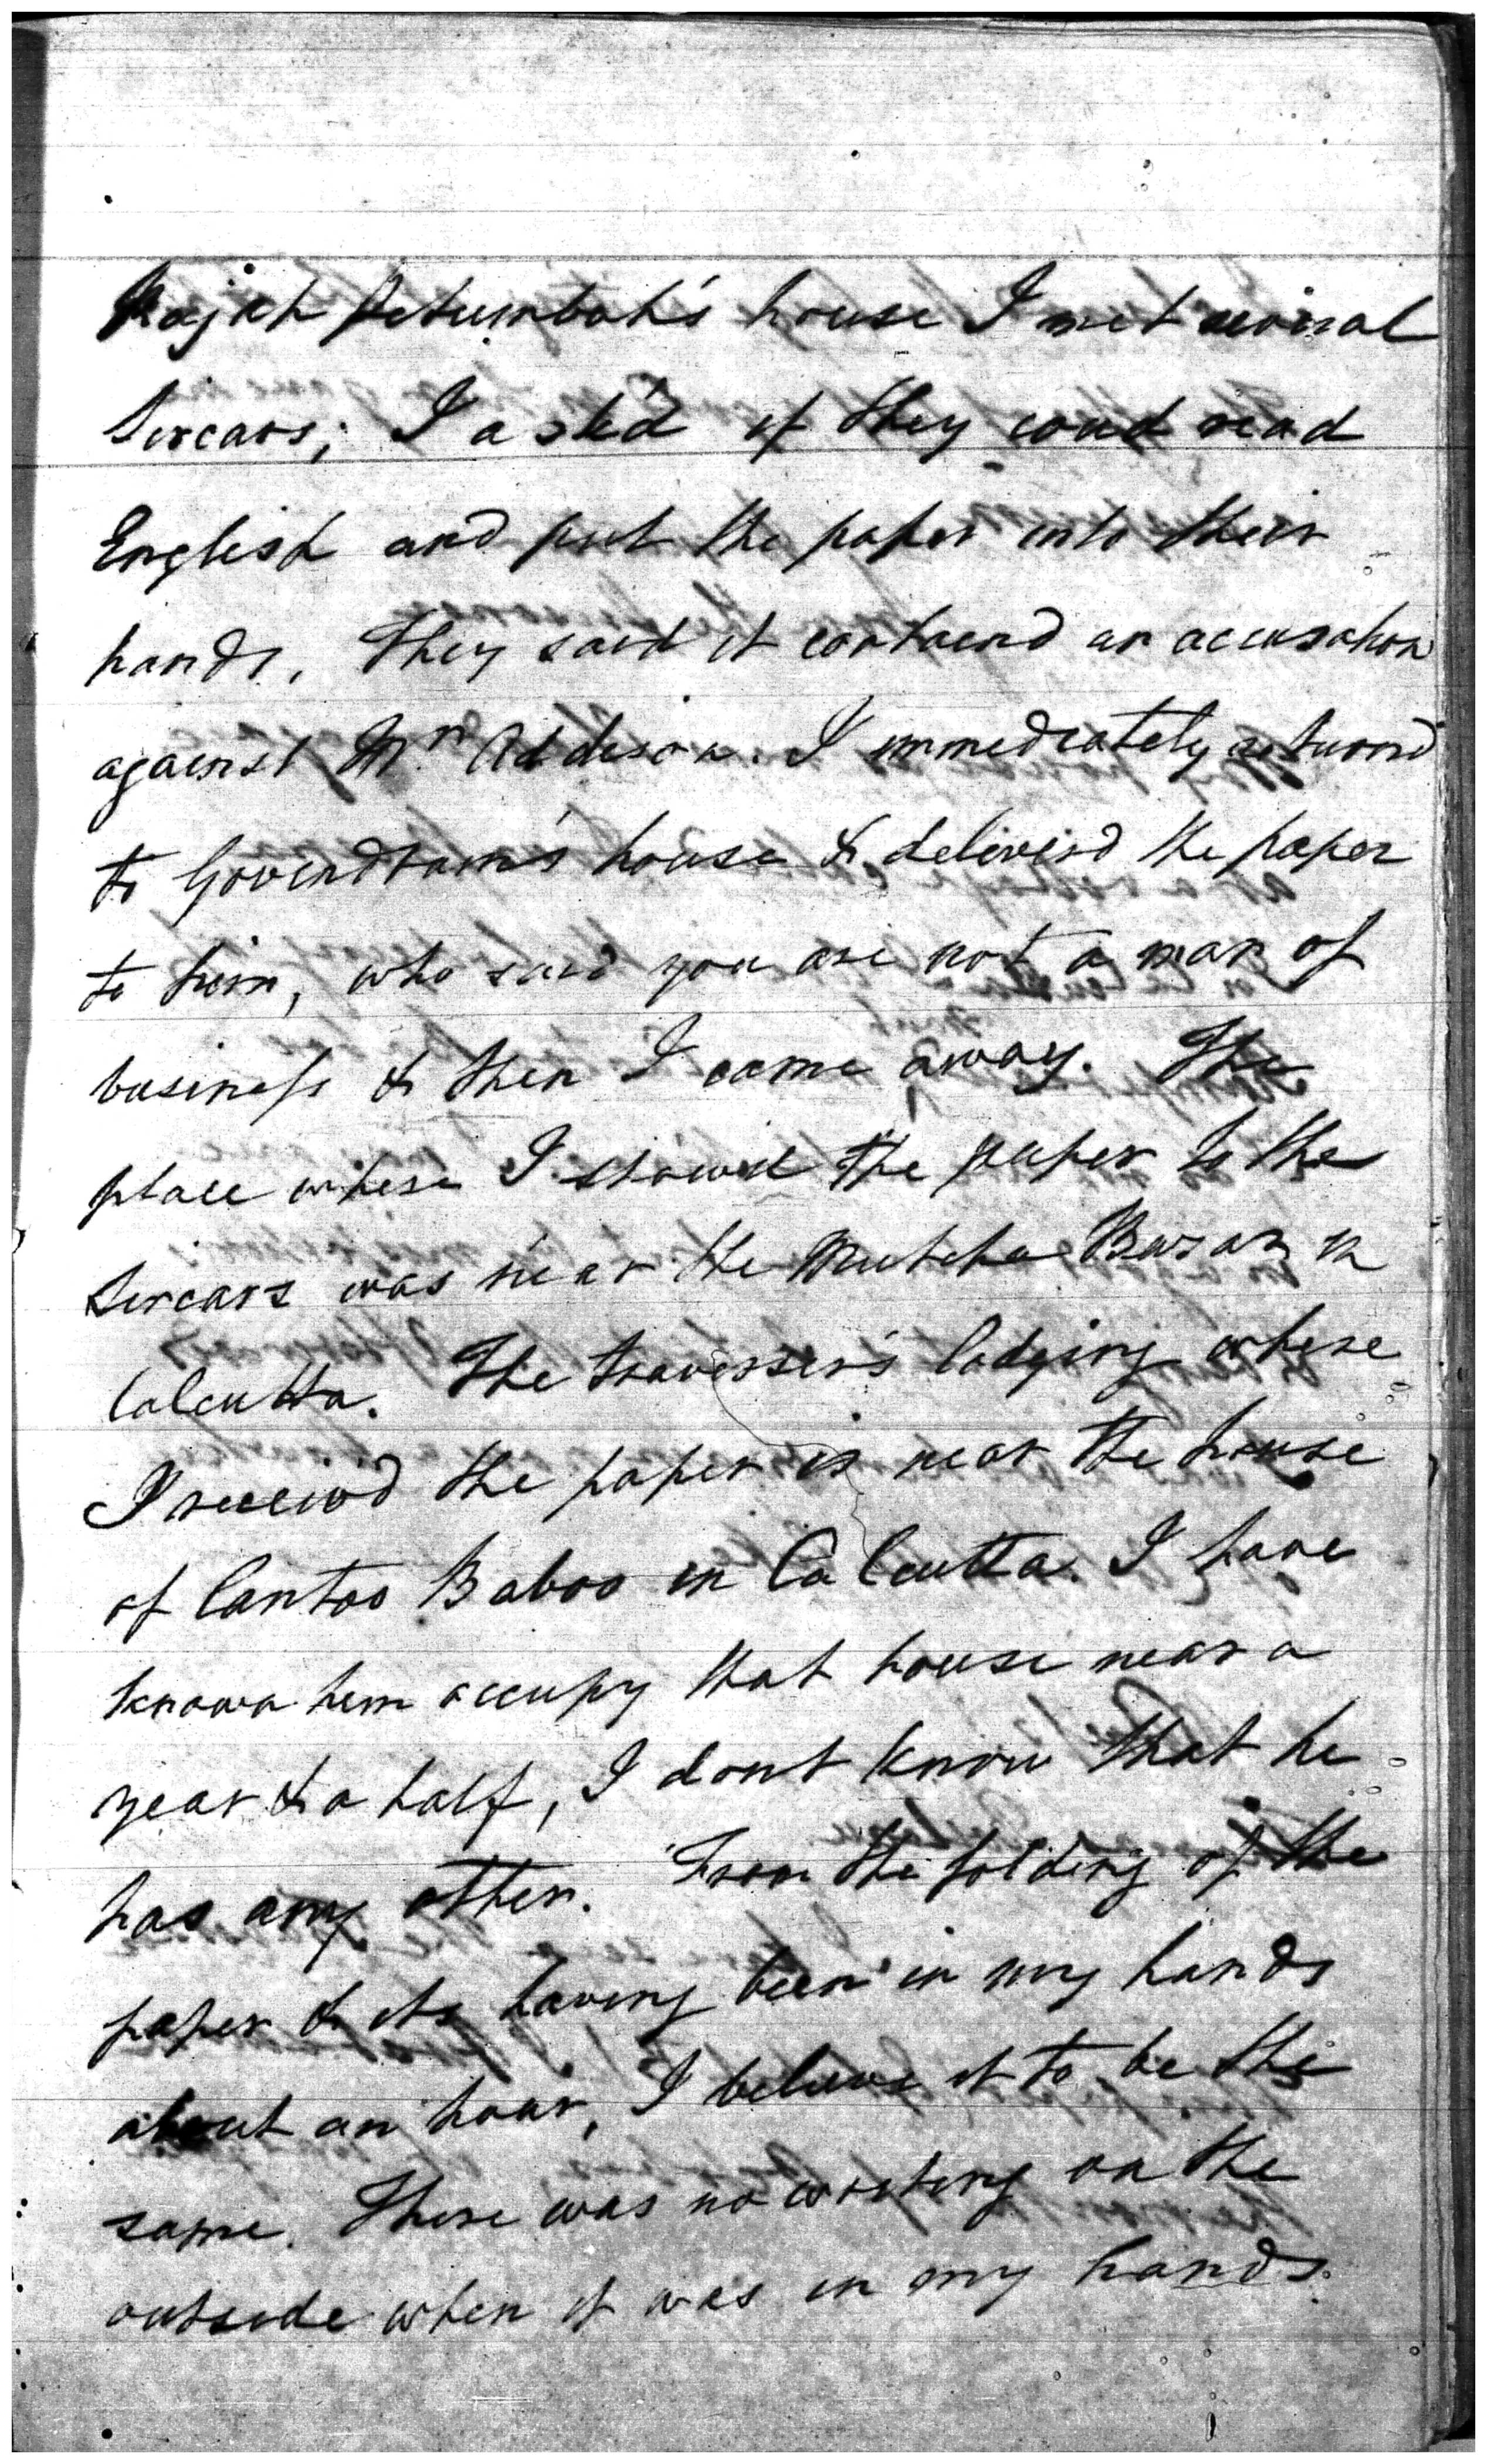 Rajah Petumboh's house I met several
Sircars; I ask'd if they coud read
English and put the paper into their
hands. They said it containd an accusation
against Mr. Addison. I immediately returnd
to Govindram's house & deliver'd the paper
to him, who said you are not a man of
business & then I came away. The
place where I showd the paper to the
Sircars was near the Mutcha Bazar in
Calcutta. The traverser's lodging where
I receiv'd the paper is near the house
of Cantoo Baboo in Calcutta. I have
known him occupy that house near a
year & a half, I dont know that he
has any other. From the folding of the
paper & its having been in my hands
about an hour, I believe it to be the
same. There was no writing on the
outside when it was in my hands.